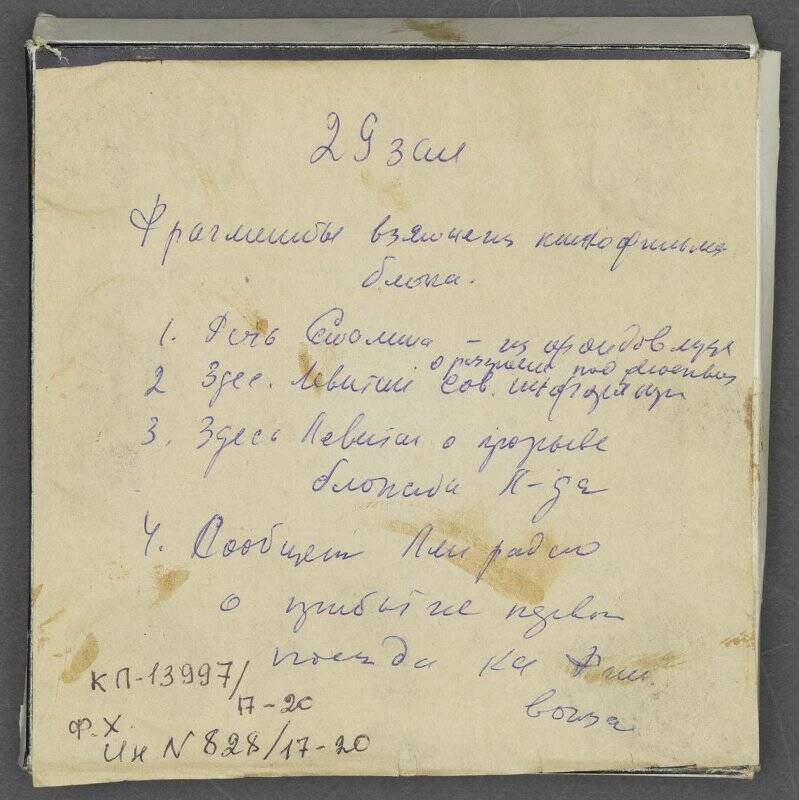 29 зал
Фрагменты взяты из кинофильма
блока.
1. Речь Сталина – из фондов музея
о разгроме под Москвой
2 Здес. Левитан Сов. информ
3. Здесь Левитан о прорыве
блокады Л-да
4. Сообщен Лен радио
о прибытие первого
поезда на Фин.
вокза
КП-13997/
17-20
Ф.Х.
Ин N 828/17-20